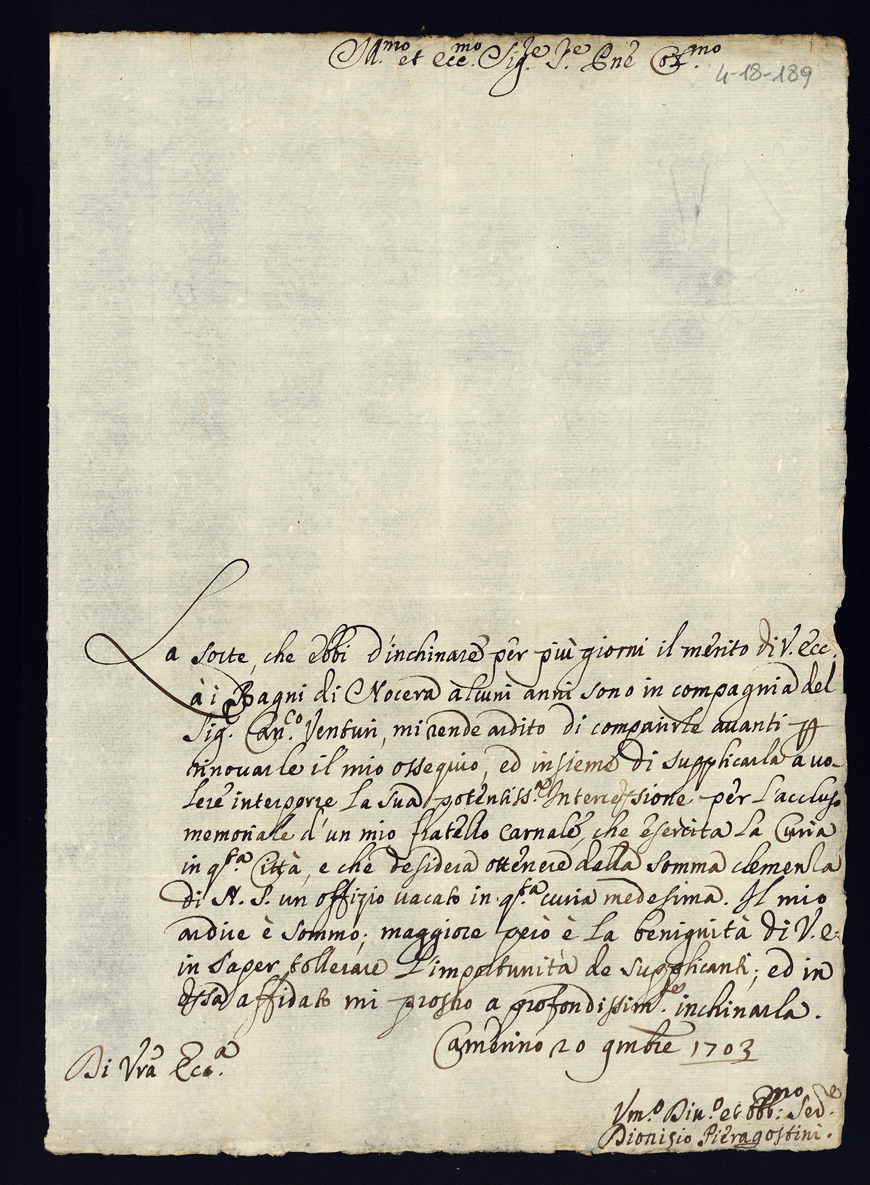 Ill.mo et ecc.mo Sig.re S.re Pne Col.mo
4-18-189
La sorte, che ebbi d'inchinare per più giorni il merito di V. Ecc.
à i Bagni di Nocera alcuni anni sono in compagnia del
Sig. Can.co Venturi, mi rende ardito di comparirle auanti p
rinouarle il mio ossequio, ed insieme di supplicarla a uo-
lere interporre la sua potentiss.a Intercessione per l'accluso
memoriale d'un mio fratello carnale, che esercita la Curia
in q.sta Città, e che desidera ottenere dalla somma clemenza
di N. S. un offizio uacato in q.sta curia medesima. Il mio
ardire è sommo; maggiore però è la benignità di V. e:
in saper tollerare l'importunità de supplicanti; ed in
essa affidato mi prostro a profondissim.te inchinarla.
Camerino 20 9mbre 1703
Di Vra Ecc.a
Vm.o Diu.o et obb:mo Ser.re
Dionisio Pieragostini.